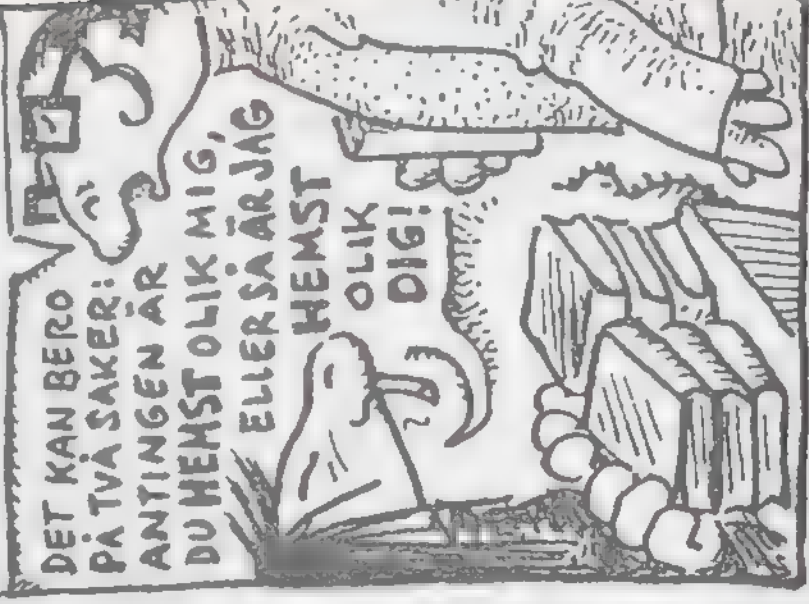 DET KAN BERO
PÅ TVÅ SAKER:
ANTINGEN ÄR
DU HEMST OLIK MIG,
ELLER SÅ ÄR JAG
HEMST
OLIK
DIG!